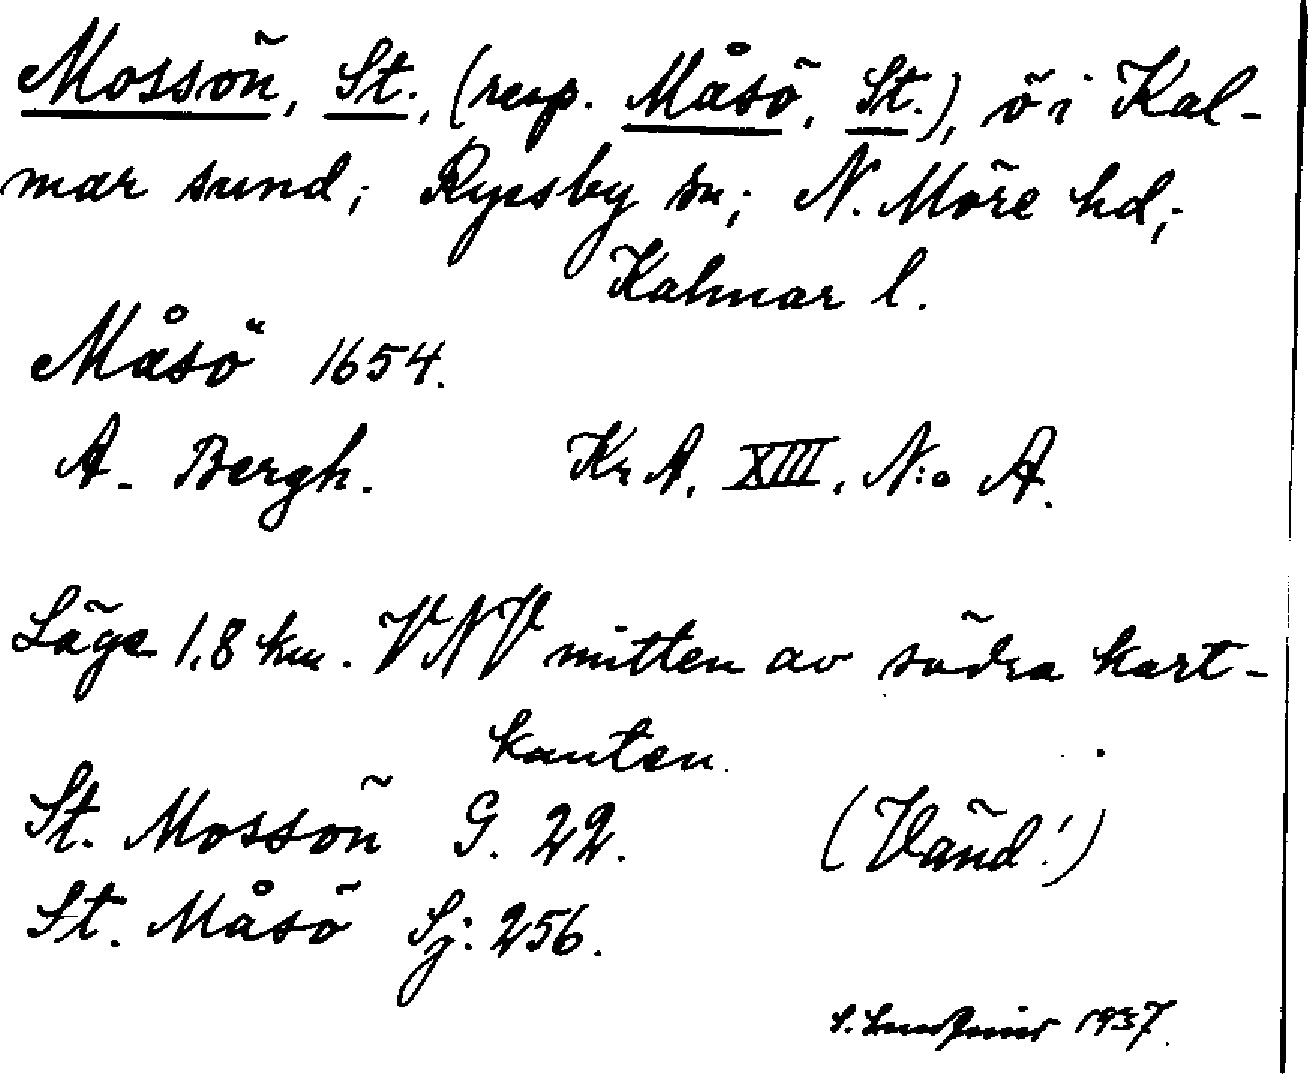 Mossön, St., (resp. Måsö, St.), ö i Kal-
mar sund; Ryssby sn; N. Möre hd;
Kalmar l.
Måsö 1654.
A. Bergh. Kr A. XIII. N:o A.
Läge 1,8 km. VNV mitten av södra kart-
kanten.
St. Mossön G. 22. (Vänd!)
St. Måsö Sj: 256.
1937.